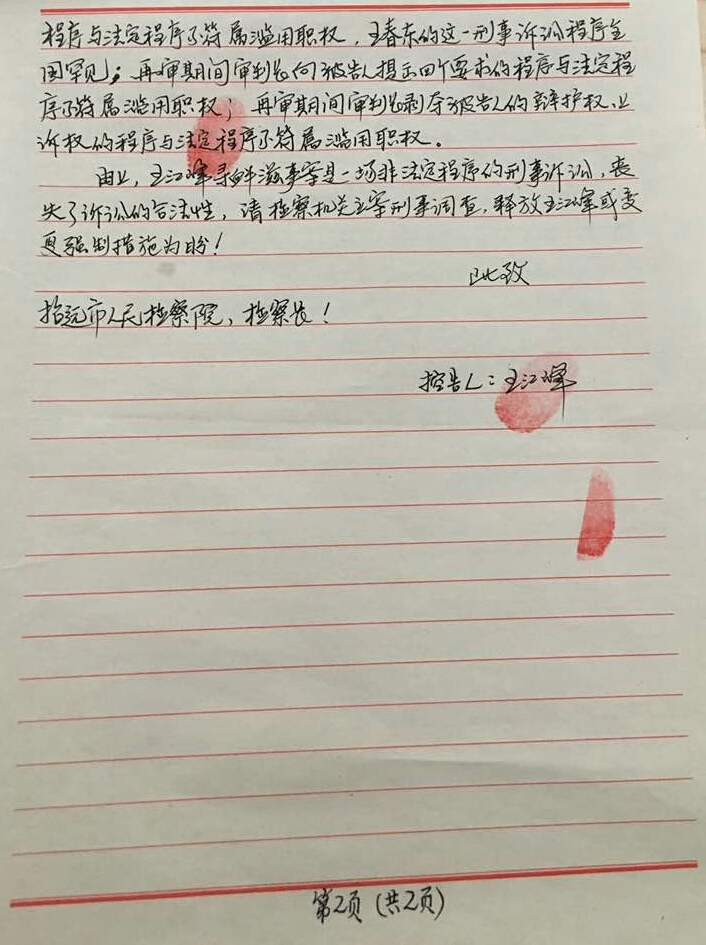 程序与法定程序不符属滥用职权，王春东的这一刑事诉讼程序全
国罕见；再审期间审判长向被告人提示四个要求的程序与法定程
序不符属滥用职权；再审期间审判长剥夺被告人的辩护权、上
诉权的程序与法定程序不符属滥用职权。
由上，王江峰寻衅滋事案是一场非法定程序的刑事诉讼，丧
失了诉讼的合法性，请检察机关立案刑事调查，释放王江峰或变
更强制措施为盼！
此致
招远市人民检察院，检察长！
控告人：王江峰
第2页（共2页）